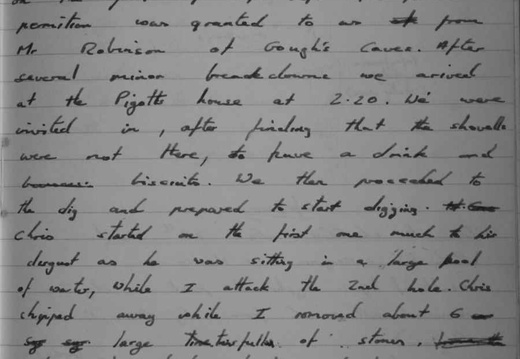 permition was granted to us from
Mr Robinson of Gough's Caves. After
several minor breakdowns we arrived
at the Pigotts house at 2.20. We were
invited in, after finding that the shovells
were not there, to have a drink and
biscuits. We then proceeded to
the dig and prepared to start digging.
Chris started on the first one much to his
disgust as he was sitting in a large pool
of water, while I attack the 2nd hole. Chris
chipped away while I removed about 6
large of stones,